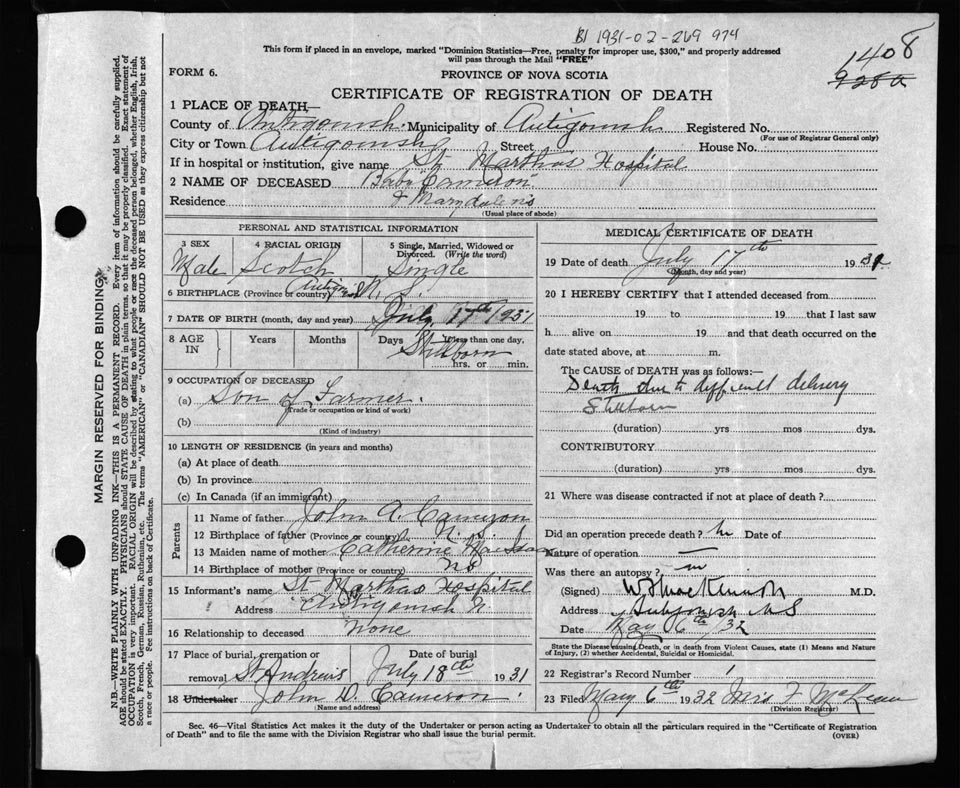 BI 1931-02-269 974
This form if placed in an envelope, marked "Dominion Statistics—Free, penalty for improper use, $300," and properly addressed
will pass through the Mail "FREE"
1408
928a
FORM 6.
PROVINCE OF NOVA SCOTIA
CERTIFICATE OF REGISTRATION OF DEATH
1 PLACE OF DEATH—
County of Antigonish. Municipality of Antigonish Registered No.
(For use of Registrar General only)
City or Town Antigonish Street House No.
If in hospital or institution, give name St. Marthas Hospital
2 NAME OF DECEASED Baby Cameron
Residence
(Usual place of abode)
PERSONAL AND STATISTICAL INFORMATION
3 SEX 4 RACIAL ORIGIN 5 Single, Married, Widowed or Divorced. (Write the word)
Male Scotch Single
6 BIRTHPLACE (Province or country) Antigonish N. S.
7 DATE OF BIRTH (month, day and year) July 17th 1931
8 AGE IN Years Months Days If less than one day,
Stillborn
hrs. or min.
9 OCCUPATION OF DECEASED
(a) Son of Farmer.
(Trade or occupation or kind of work)
(b)
(Kind of industry)
10 LENGTH OF RESIDENCE (in years and months)
(a) At place of death
(b) In province
(c) In Canada (if an immigrant)
Parents
11 Name of father John A. Cameron
12 Birthplace of father (Province or country) N. S.
13 Maiden name of mother Catherine
14 Birthplace of mother (Province or country) NS
15 Informant's name St. Marthas Hospital
Address Antigonish N.
16 Relationship to deceased None
17 Place of burial, cremation or removal Date of burial
St Andrews July 18th 1931
18 Undertaker John D. Cameron
(Name and address)
MEDICAL CERTIFICATE OF DEATH
19 Date of death July 17th 1931
(Month, day and year)
20 I HEREBY CERTIFY that I attended deceased from
19 to 19 that I last saw
h alive on 19 and that death occurred on the
date stated above, at m.
The CAUSE of DEATH was as follows:—
Death due to difficult delivery
Stillborn
(duration) yrs mos dys.
CONTRIBUTORY
(duration) yrs mos dys.
21 Where was disease contracted if not at place of death?
Did an operation precede death? no Date of
Nature of operation —
Was there an autopsy? no
(Signed) M.D.
Address Antigonish NS
Date May 6th/32
State the Disease causing Death, or in death from Violent Causes, state (1) Means and Nature
of Injury, (2) whether Accidental, Suicidal or Homicidal.
22 Registrar's Record Number 1
23 Filed May 6th 1932 Mrs F McLean
(Division Registrar)
Sec. 46—Vital Statistics Act makes it the duty of the Undertaker or person acting as Undertaker to obtain all the particulars required in the "Certificate of Registration
of Death" and to file the same with the Division Registrar who shall issue the burial permit.
(OVER)
MARGIN RESERVED FOR BINDING
N.B.—WRITE PLAINLY WITH UNFADING INK—THIS IS A PERMANENT RECORD. Every item of information should be carefully supplied.
AGE should be stated EXACTLY. PHYSICIANS should STATE CAUSE OF DEATH in plain terms, so that it may be properly classified. Exact statement of
OCCUPATION is very important. RACIAL ORIGIN will be described by stating to what people or race the deceased person belonged, whether English, Irish,
Scotch, French, German, Russian, Ruthenian, etc. The terms "AMERICAN" or "CANADIAN" SHOULD NOT BE USED as they express citizenship but not
a race or people. See instructions on back of Certificate.